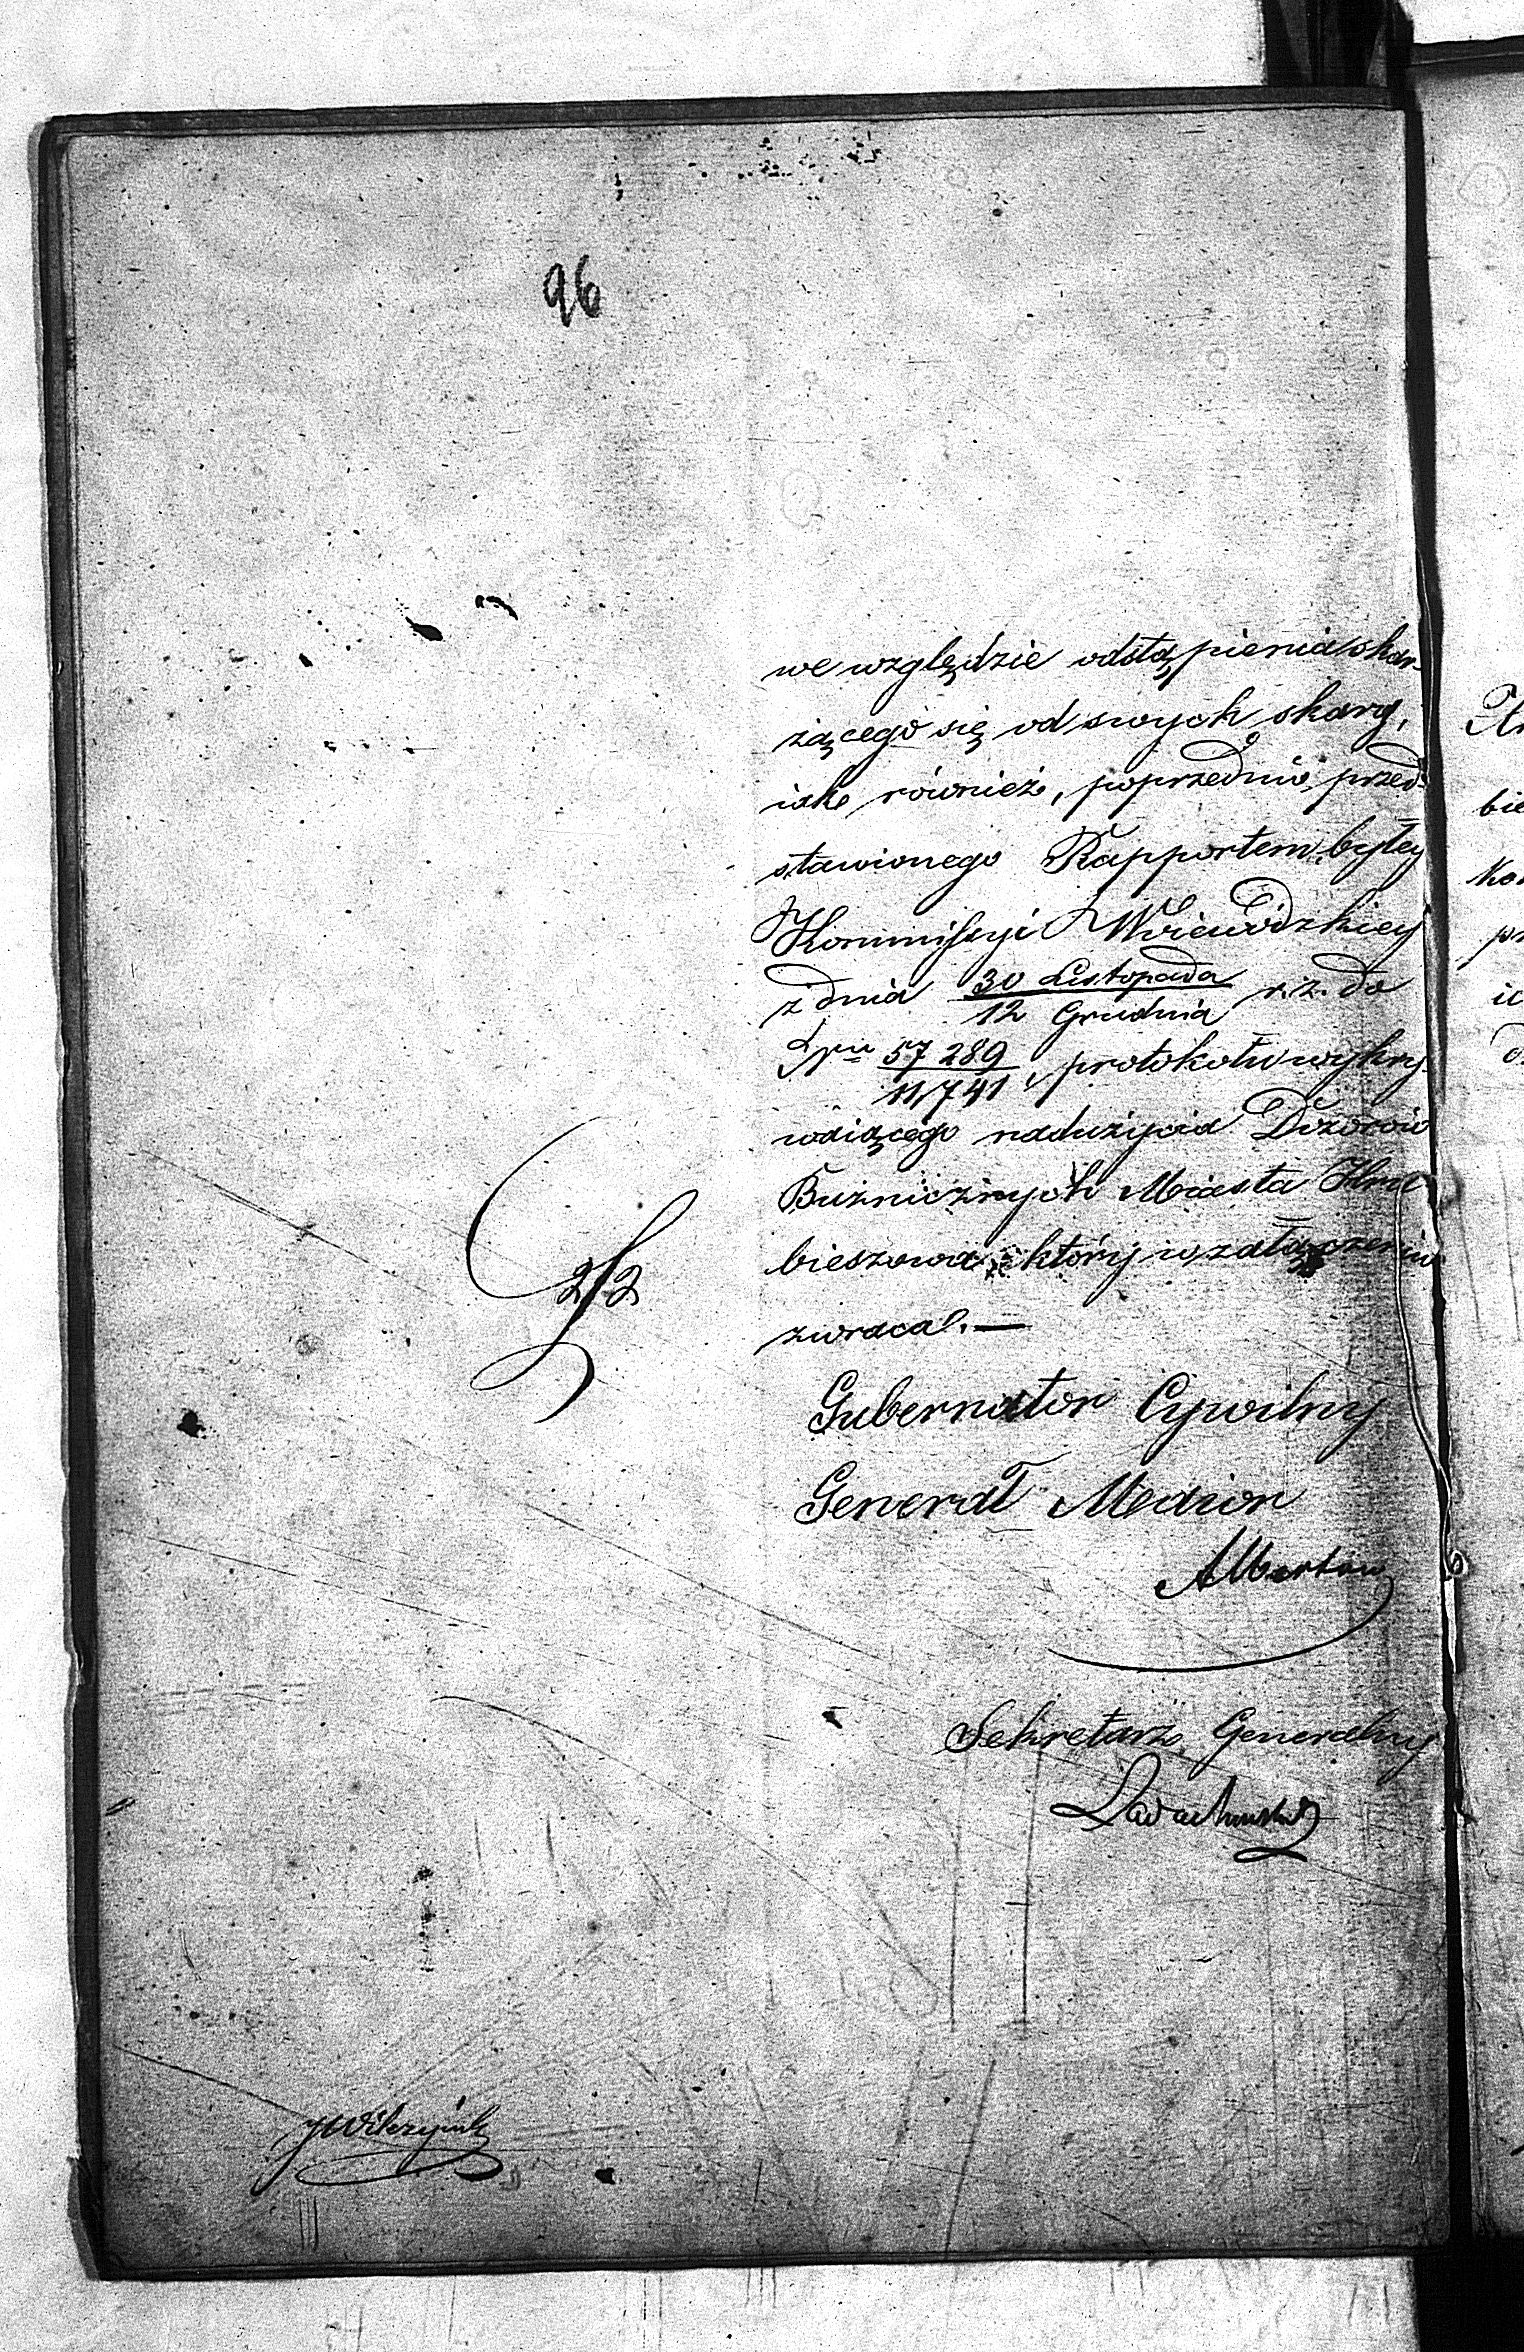 96
we względzie odstąpienia skar-
żącego się od swych skarg,
iako również, poprzednio przed-
stawionego Rapportem byłey
Kommissyi Woiewódzkiey
z dnia 30 Listopada / 12 Grudnia r. z. do
Nru 57289 / 11,741, protokołu wykry-
waiącego nadużycia Dozorów
Bużniczych Miasta Hru-
bieszowa, który w załączeniu
zwracał. —
2/2
Gubernator Cywilny
Generał Maior
Albertow
Sekretarz Generalny
JWilczyński